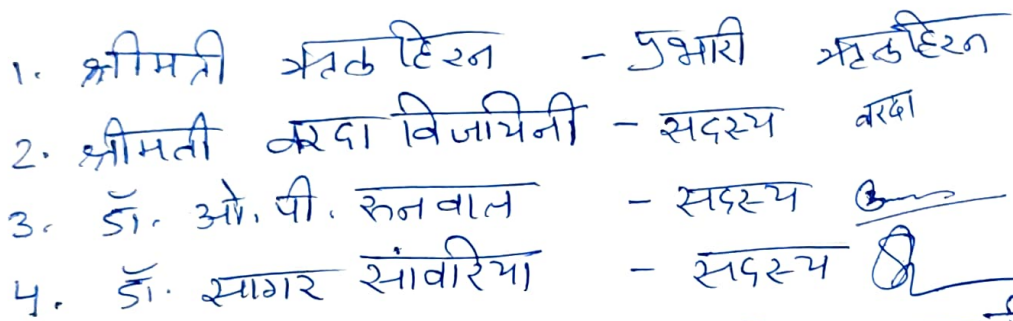 1. श्रीमती ऋतल हिरन - प्रभारी ऋतल हिरन
2. श्रीमती वरदा विजयिनी - सदस्य वरदा
3. डॉ. ओ. पी. रुनवाल - सदस्य
4. डॉ. सागर सांवरिया - सदस्य